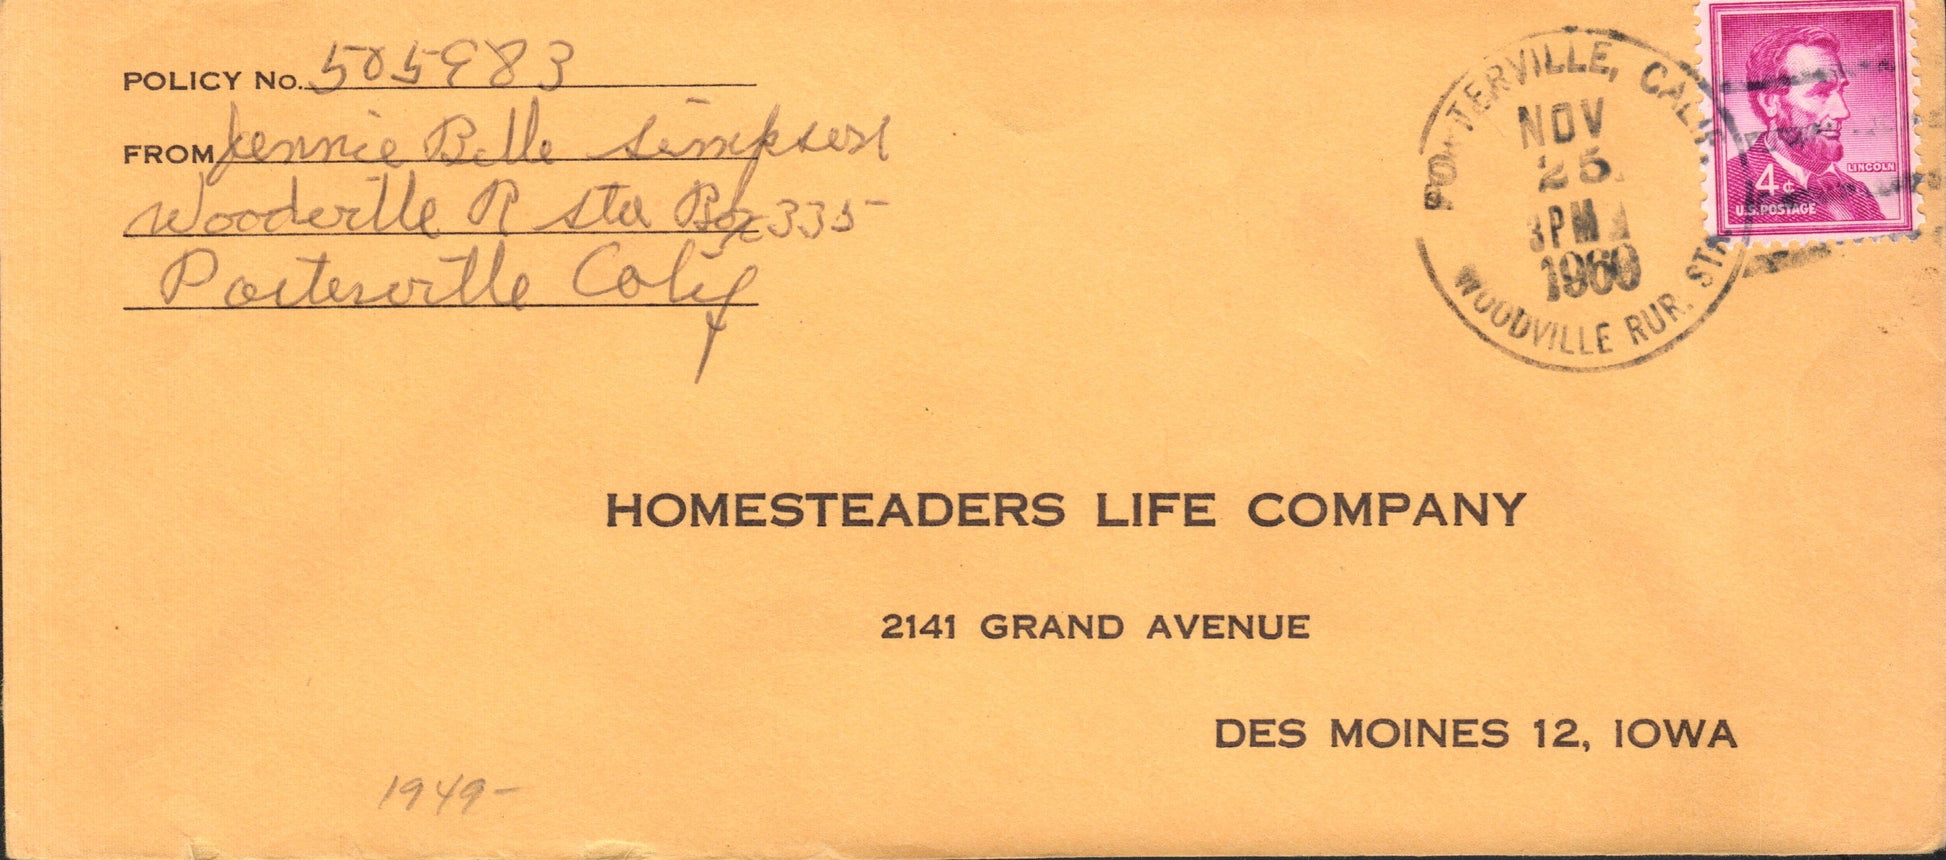 POLICY No. 505983
FROM Jennie Belle Simpson
Woodville R Sta Box 335
Porterville Calif
PORTERVILLE, CALIF.
NOV
25
3 PM
1960
WOODVILLE RUR. STA.
LINCOLN
4¢
U.S. POSTAGE
HOMESTEADERS LIFE COMPANY
2141 GRAND AVENUE
DES MOINES 12, IOWA
1949-